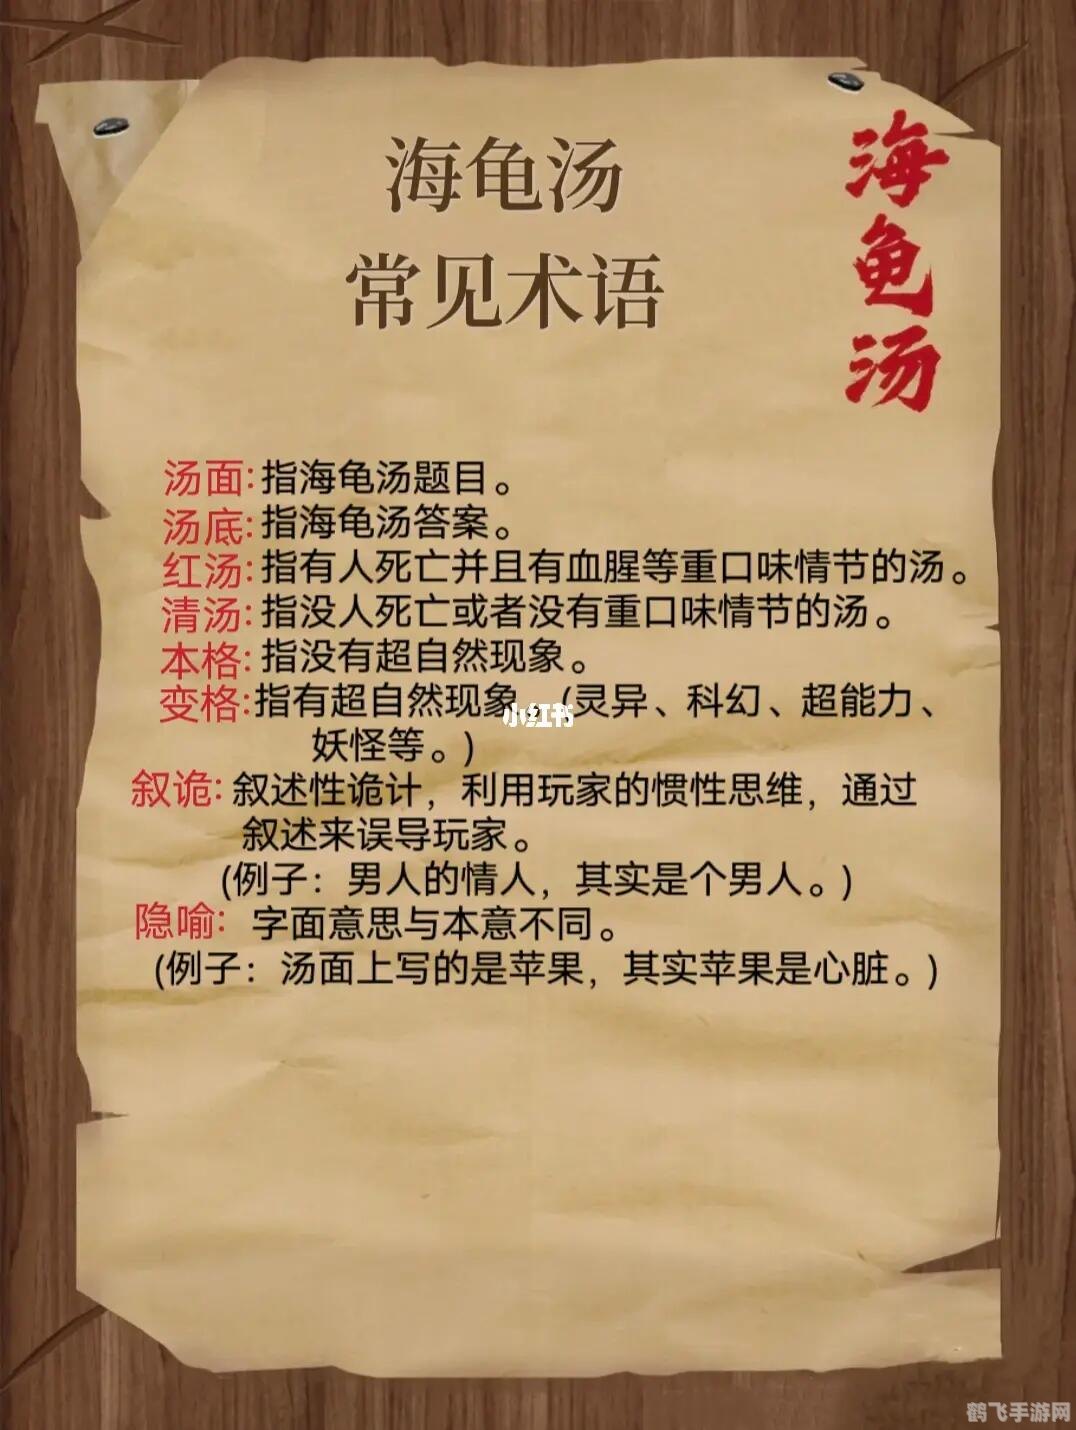 海龟汤
常见术语
海龟汤
汤面:指海龟汤题目。
汤底:指海龟汤答案。
红汤:指有人死亡并且有血腥等重口味情节的汤。
清汤:指没人死亡或者没有重口味情节的汤。
本格:指没有超自然现象。
变格:指有超自然现象。(灵异、科幻、超能力、
小红书
妖怪等。)
叙诡:叙述性诡计，利用玩家的惯性思维，通过
叙述来误导玩家。
(例子：男人的情人，其实是个男人。)
隐喻:字面意思与本意不同。
(例子：汤面上写的是苹果，其实苹果是心脏。)
鹤飞手游网